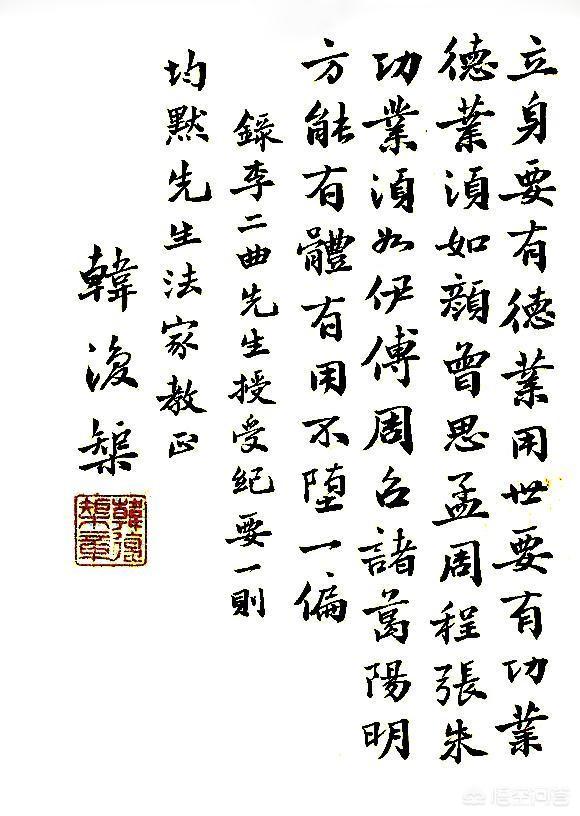 立身要有德業用世要有功業
德業須如顏曾思孟周程張朱
功業須如伊傅周召諸葛陽明
方能有體有用不墮一偏
錄李二曲先生授受紀要一則
均默先生法家教正
韓復榘
韓復榘章
悟空问答